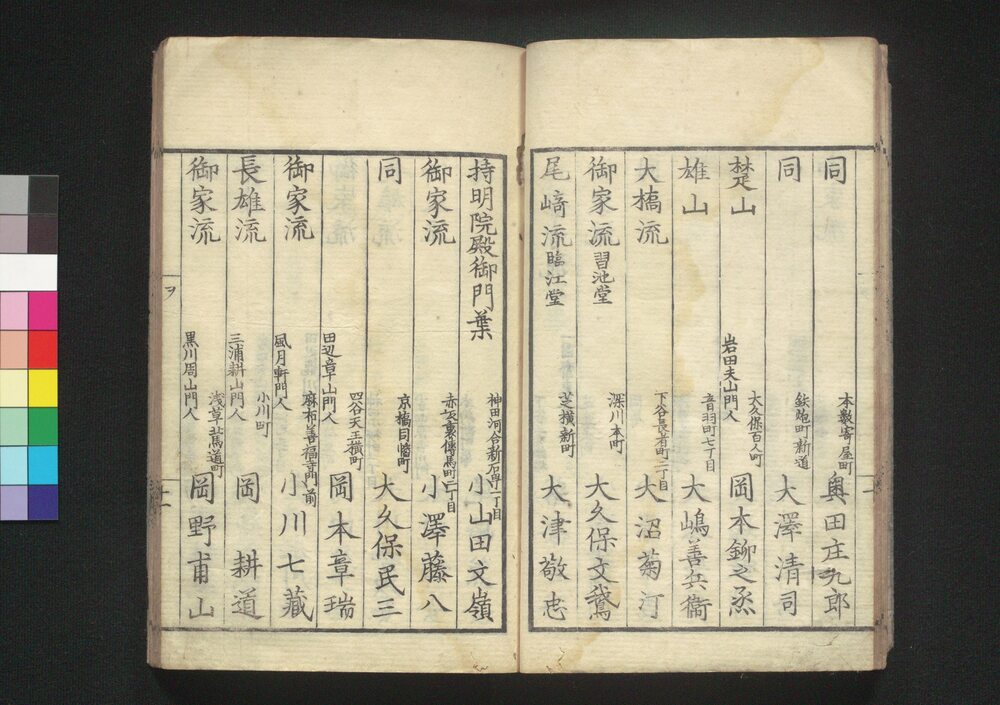 同 本数寄屋町 奥田庄九郎
同 鉄炮町新道 大澤清司
楚山 岩田夫山門人 大久保百人町 岡本鉚之烝
雄山 音羽町七丁目 大嶋善兵衛
大橋流 下谷長者町二丁目 大沼菊汀
御家流 習池堂 深川本町 大久保文鵞
尾﨑流 臨江堂 芝横新町 大津敬忠
持明院殿御門葉 神田河合新石町一丁目 小山田文嶺
御家流 赤坂裏傳馬町二丁目 小澤藤八
同 京橋目幡町 大久保民三
田辺章山門人 四谷天王横町 岡本章瑞
御家流 風月軒門人 麻布善福寺門前 小川七藏
長雄流 三浦耕山門人 小川町 岡耕道
御家流 黒川周山門人 浅草馬道町 岡野甫山
ヲ